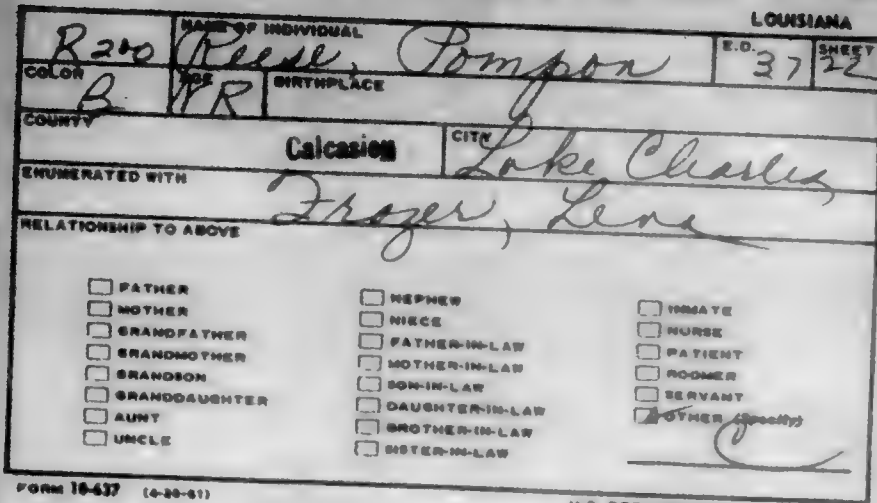 LOUISIANA
R 200 NAME OF INDIVIDUAL Reese, Pompon E.D. 37 SHEET 22
COLOR B AGE NR BIRTHPLACE
COUNTY Calcasieu CITY Lake Charles
ENUMERATED WITH Frozer, Lena
RELATIONSHIP TO ABOVE
FATHER
MOTHER
GRANDFATHER
GRANDMOTHER
GRANDSON
GRANDDAUGHTER
AUNT
UNCLE
NEPHEW
NIECE
FATHER-IN-LAW
MOTHER-IN-LAW
SON-IN-LAW
DAUGHTER-IN-LAW
BROTHER-IN-LAW
SISTER-IN-LAW
INMATE
NURSE
PATIENT
ROOMER
SERVANT
OTHER (Specify)
FORM 10-637 (4-20-61)